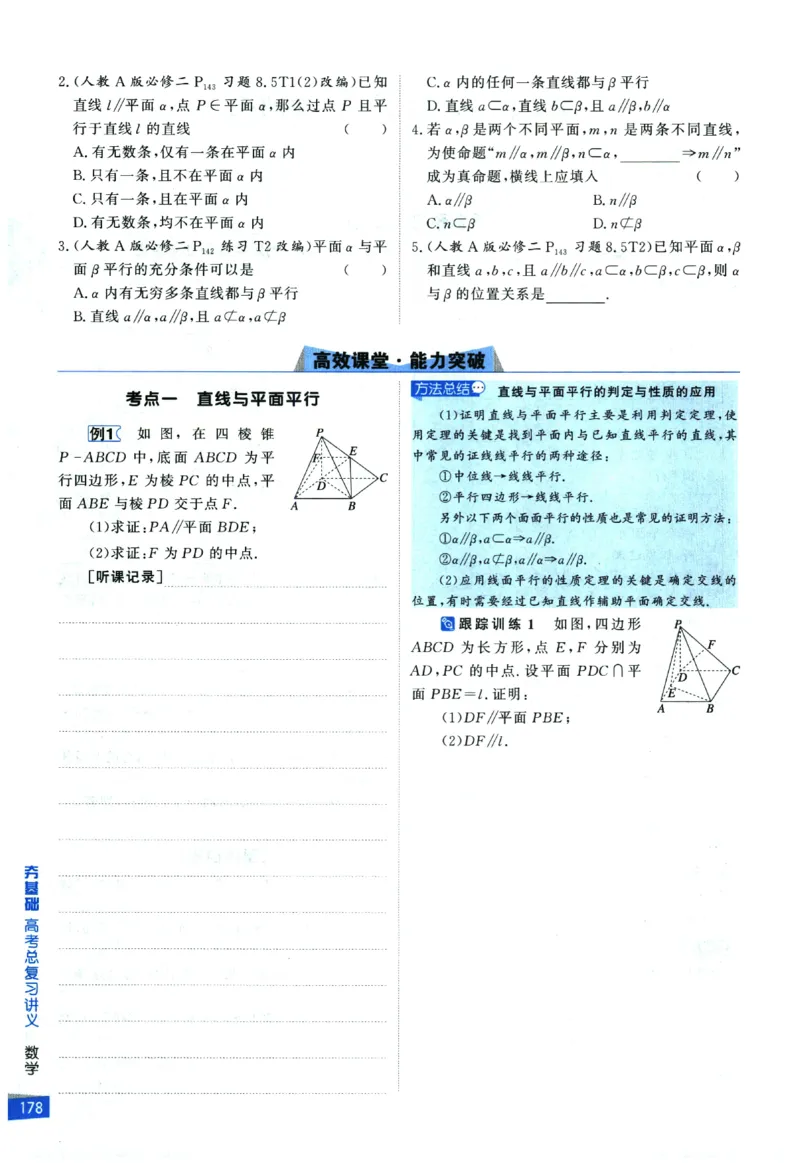 2.(人教 A 版必修二 P₁₄₃ 习题 8.5T1(2)改编)已知
直线 l∥平面 α,点 P∈平面 α,那么过点 P 且平
行于直线 l 的直线 (　　)
A.有无数条,仅有一条在平面 α 内
B.只有一条,且不在平面 α 内
C.只有一条,且在平面 α 内
D.有无数条,均不在平面 α 内
3.(人教 A 版必修二 P₁₄₂ 练习 T2 改编)平面 α 与平
面 β 平行的充分条件可以是 (　　)
A.α 内有无穷多条直线都与 β 平行
B.直线 a∥α,a∥β,且 a⊄α,a⊄β
C.α 内的任何一条直线都与 β 平行
D.直线 a⊂α,直线 b⊂β,且 a∥β,b∥α
4.若 α,β 是两个不同平面,m,n 是两条不同直线,
为使命题“m∥α,m∥β,n⊂α,______⇒m∥n”
成为真命题,横线上应填入 (　　)
A.α∥β B.n∥β
C.n⊂β D.n⊄β
5.(人教 A 版必修二 P₁₄₃ 习题 8.5T2)已知平面 α,β
和直线 a,b,c,且 a∥b∥c,a⊂α,b⊂β,c⊂β,则 α
与 β 的位置关系是______.
高效课堂·能力突破
考点一 直线与平面平行
例1 如图,在四棱锥
P-ABCD 中,底面 ABCD 为平
行四边形,E 为棱 PC 的中点,平
面 ABE 与棱 PD 交于点 F.
P
E
F
D
C
A
B
(1)求证:PA∥平面 BDE;
(2)求证:F 为 PD 的中点.
[听课记录]
方法总结 直线与平面平行的判定与性质的应用
(1)证明直线与平面平行主要是利用判定定理,使
用定理的关键是找到平面内与已知直线平行的直线,其
中常见的证线线平行的两种途径:
①中位线→线线平行.
②平行四边形→线线平行.
另外以下两个面面平行的性质也是常见的证明方法:
①α∥β,a⊂α⇒a∥β.
②α∥β,a⊄β,a∥α⇒a∥β.
(2)应用线面平行的性质定理的关键是确定交线的
位置,有时需要经过已知直线作辅助平面确定交线.
跟踪训练 1 如图,四边形
ABCD 为长方形,点 E,F 分别为
AD,PC 的中点.设平面 PDC∩平
面 PBE=l.证明:
P
F
D
C
E
A
B
(1)DF∥平面 PBE;
(2)DF∥l.
夯基础 高考总复习讲义 数学
178